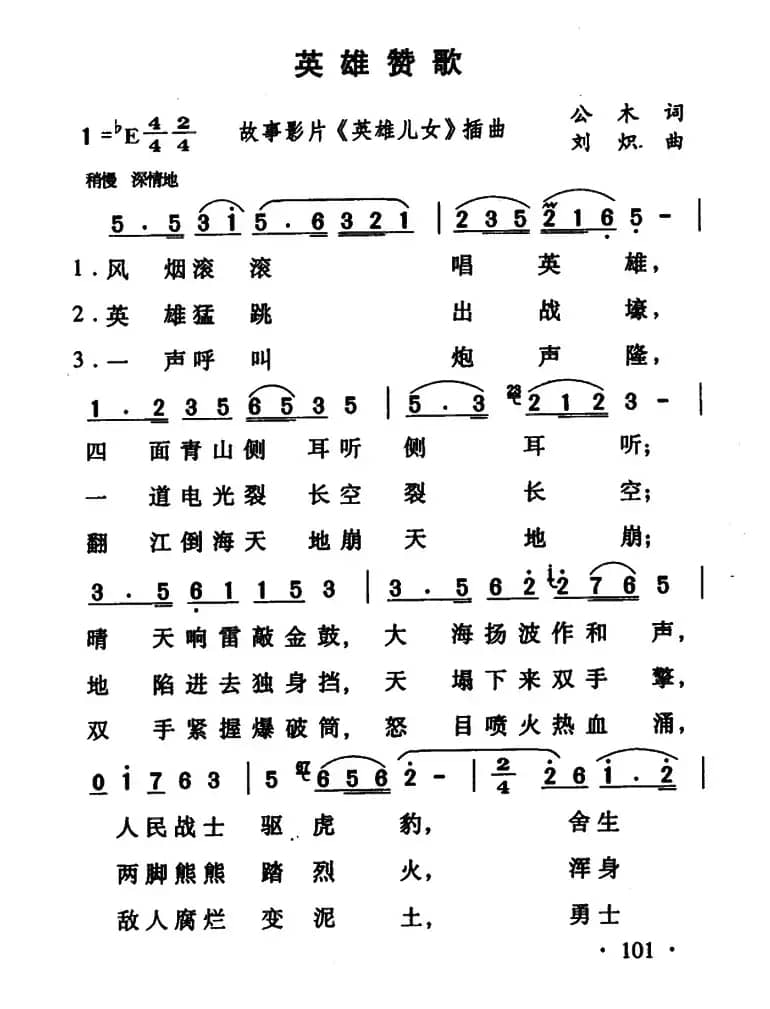 英雄赞歌
1=♭E 4/4 2/4 故事影片《英雄儿女》插曲 公木 词
刘炽 曲
稍慢 深情地
5 . 5 3 i 5 . 6 3 2 1 | 2 3 5 2 1 6 5 - |
1.风 烟滚 滚 唱 英 雄,
2.英 雄猛 跳 出 战 壕,
3.一 声呼 叫 炮 声 隆,
1 . 2 3 5 6 5 3 5 | 5 . 3 23 2 1 2 3 - |
四 面青山侧 耳听 侧 耳 听;
一 道电光裂 长空 裂 长 空;
翻 江倒海天 地崩 天 地 崩;
3 . 5 6 1 1 5 3 | 3 . 5 6 2 i 2 7 6 5 |
晴 天响雷敲金鼓, 大 海扬波作和 声,
地 陷进去独身挡, 天 塌下来双手 擎,
双 手紧握爆破筒, 怒 目喷火热血 涌,
0 i 7 6 6 3 | 5 6 5 6 2 - | 2/4 2 6 i . 2 |
人民战士 驱 虎 豹, 舍生
两脚熊熊 踏 烈 火, 浑身
敌人腐烂 变 泥 土, 勇士
· 101 ·